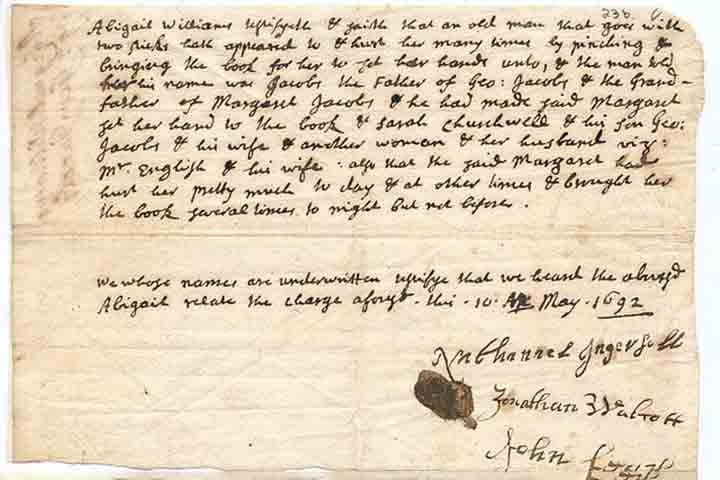 236
Abigail Williams testifyeth & saith that an old man that goes with
two sticks hath appeared to & hurt her many times by pinching &
bringing the book for her to set her hand unto, & the man told
her his name was Jacobs the Father of Geo: Jacobs & the Grand-
father of Margaret Jacobs & he had made said Margaret
set her hand to the book & Sarah Churchwell & his son Geo:
Jacobs & his wife & another woman & her husband viz:
Mr. English & his wife: also that the said Margaret had
hurt her pretty much to day & at other times & brought her
the book several times to night but not before.
We whose names are underwritten testifye that we heard the abovesd
Abigail relate the charge aforesd this 10 May 1692
Nathanael Ingersoll
Jonathan Walcott
John